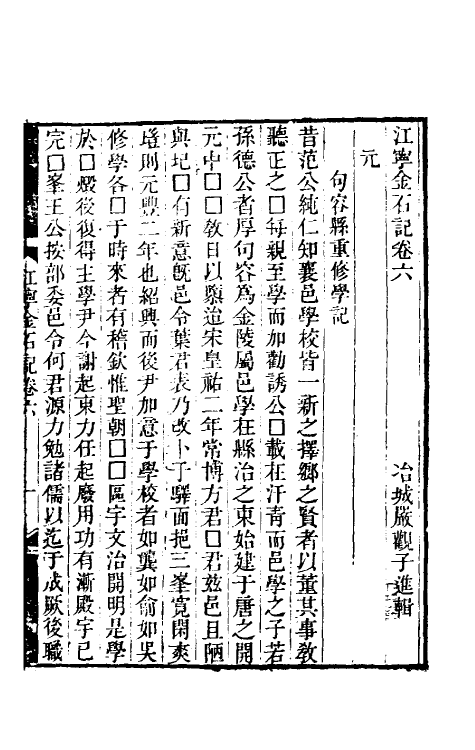 江寧金石記卷六　　　　　　　冶城嚴觀子進輯
元
句容縣重修學記
昔范公純仁知襄邑學校皆一新之擇鄉之賢者以董其事敎
聽正之□每親至學而加勸誘公□載在汗靑而邑學之子若
孫德公者厚句容爲金陵屬邑學在縣治之東始建于唐之開
元中□□敎日以隳迨宋皇祐二年常博方君□君玆邑且陋
與圮□有新意旣邑令葉君表乃改卜于驛面挹三峯寛閑爽
塏則元豐二年也紹興而後尹加意于學校者如龔如俞如吳
修學各□于時來者有稽欽惟聖朝□□區宇文治開明是學
於□燬後復得主學尹今謝起東力任起廢用功有漸殿宇已
完□峯王公按部委邑令何君源力勉諸儒以迄于成厥後職
江寧金石記卷六　一